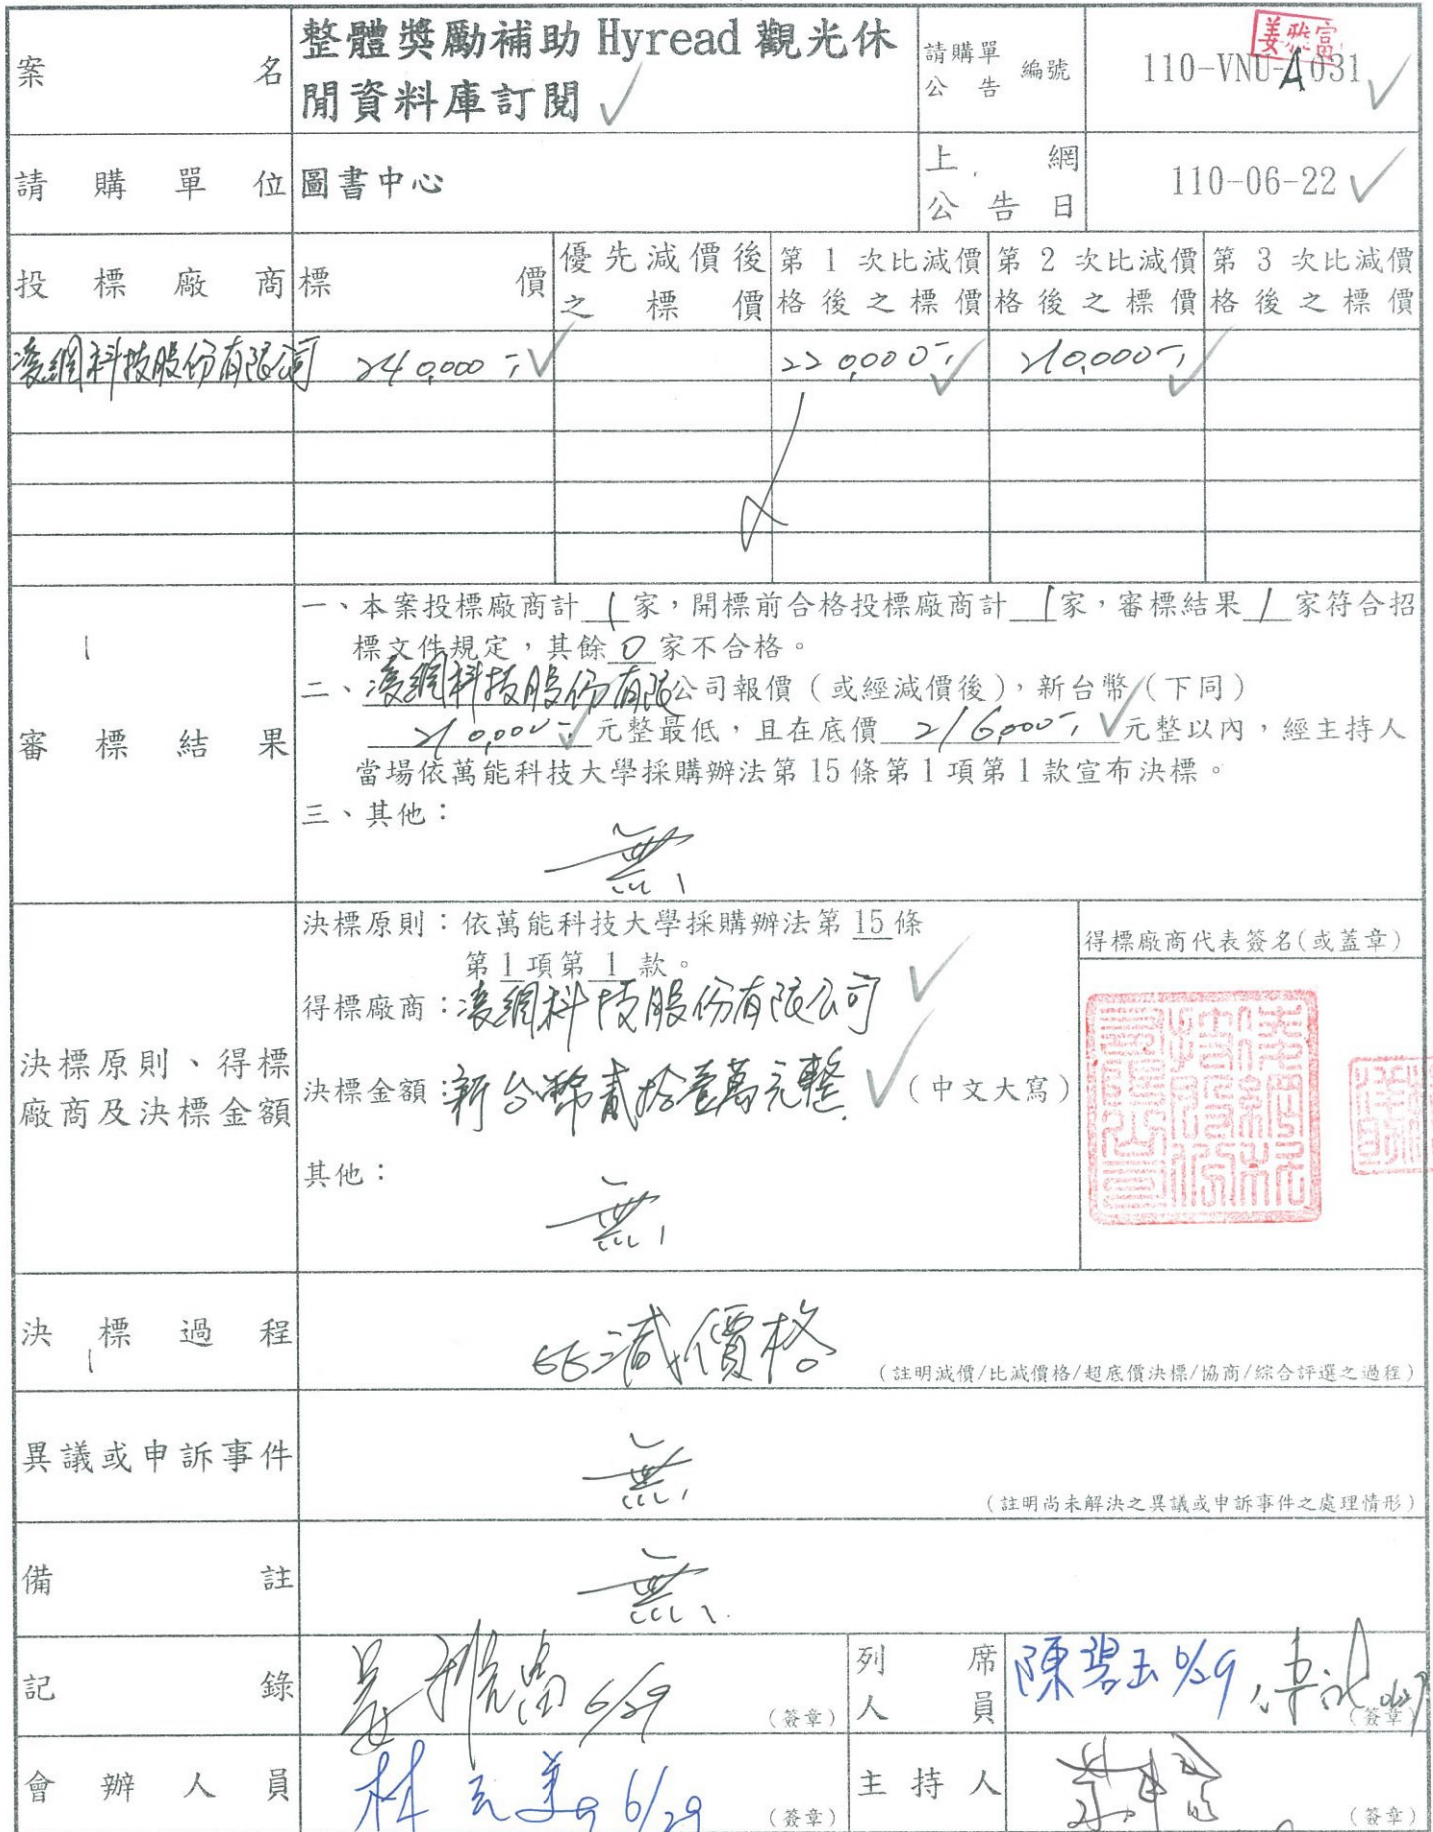 案名 整體獎勵補助 Hyread 觀光休
閒資料庫訂閱
請購單
公告 編號 110-VNU-A031
請購單位 圖書中心
上網
公告日 110-06-22
投標廠商 標價 優先減價後之標價 第1次比減價格後之標價 第2次比減價格後之標價 第3次比減價格後之標價
凌網科技股份有限公司 240,000 220,000 210,000
審標結果
一、本案投標廠商計 1 家,開標前合格投標廠商計 1 家,審標結果 1 家符合招
標文件規定,其餘 0 家不合格。
二、凌網科技股份有限公司報價(或經減價後),新台幣(下同)
210,000 元整最低,且在底價 216,000 元整以內,經主持人
當場依萬能科技大學採購辦法第15條第1項第1款宣布決標。
三、其他:
無
決標原則、得標
廠商及決標金額
決標原則:依萬能科技大學採購辦法第 15 條
第 1 項第 1 款。
得標廠商:凌網科技股份有限公司
決標金額:新台幣貳拾壹萬元整 (中文大寫)
其他:
無
得標廠商代表簽名(或蓋章)
決標過程 比減價格
(註明減價/比減價格/超底價決標/協商/綜合評選之過程)
異議或申訴事件 無
(註明尚未解決之異議或申訴事件之處理情形)
備註 無
記錄 6/29 (簽章)
列席人員 陳碧玉 6/29 (簽章)
會辦人員 林 美 6/29 (簽章)
主持人 (簽章)